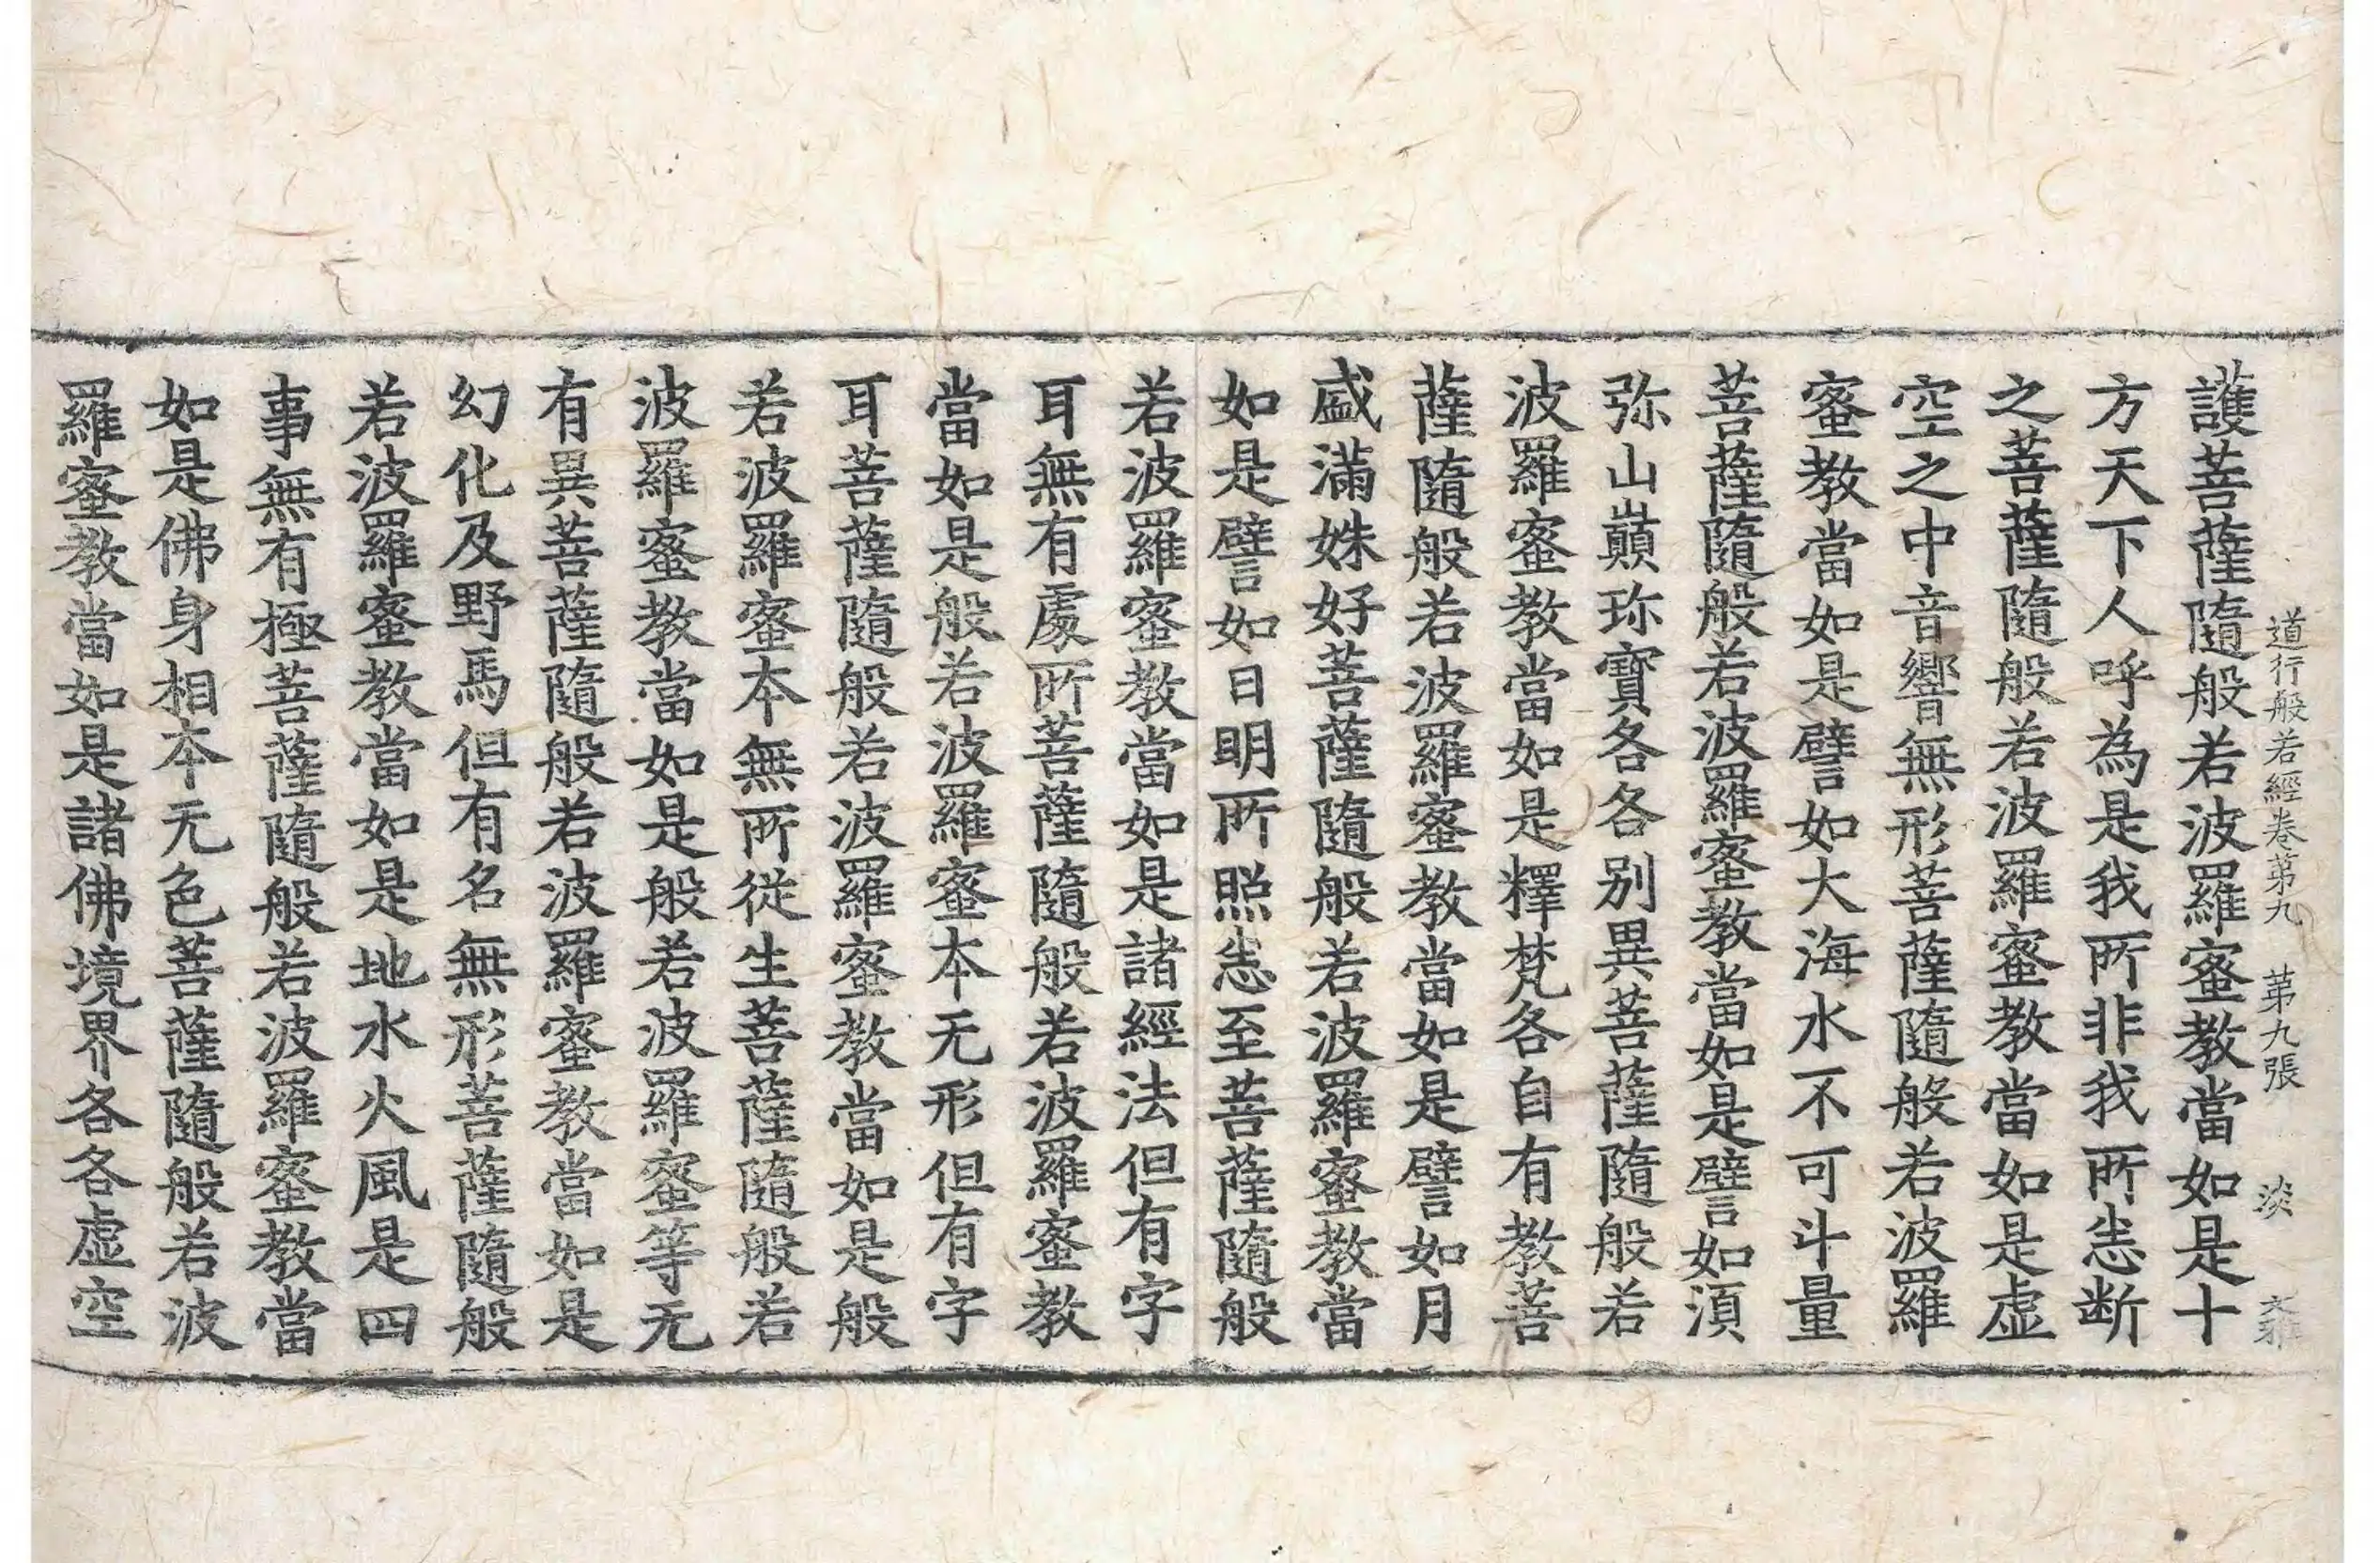 道行般若經卷第九 第九張 淡
護菩薩隨般若波羅蜜教當如是十
方天下人呼為是我所非我所悉断
之菩薩隨般若波羅蜜教當如是虛
空之中音響無形菩薩隨般若波羅
蜜教當如是譬如大海水不可斗量
菩薩隨般若波羅蜜教當如是譬如須
弥山巔珎寶各各別異菩薩隨般若
波羅蜜教當如是釋梵各自有教菩
薩隨般若波羅蜜教當如是譬如月
盛滿姝好菩薩隨般若波羅蜜教當
如是譬如日明所照悉至菩薩隨般
若波羅蜜教當如是諸經法但有字
耳無有處所菩薩隨般若波羅蜜教
當如是般若波羅蜜本无形但有字
耳菩薩隨般若波羅蜜教當如是般
若波羅蜜本無所從生菩薩隨般若
波羅蜜教當如是般若波羅蜜等无
有異菩薩隨般若波羅蜜教當如是
幻化及野馬但有名無形菩薩隨般
若波羅蜜教當如是地水火風是四
事無有極菩薩隨般若波羅蜜教當
如是佛身相本无色菩薩隨般若波
羅蜜教當如是諸佛境界各各虛空